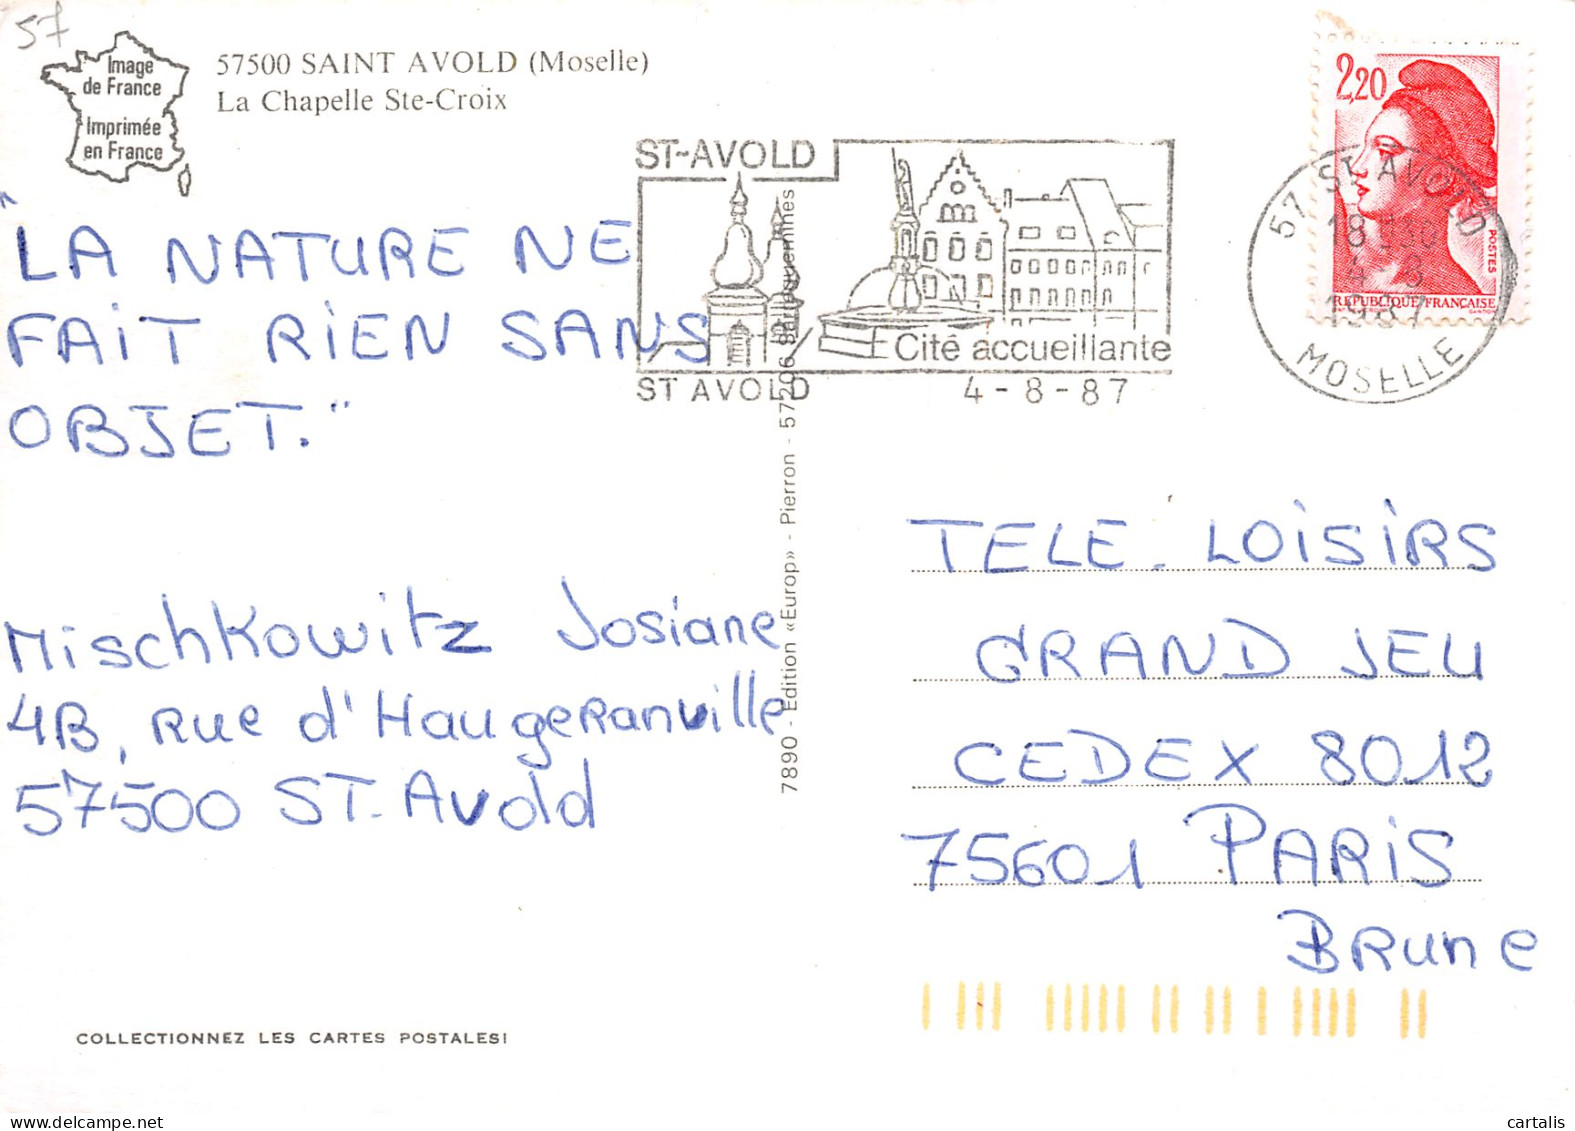 57
Image
de France
Imprimée
en France
57500 SAINT AVOLD (Moselle)
La Chapelle Ste-Croix
"LA NATURE NE
FAIT RIEN SANS
OBJET."
Mischkowitz Josiane
4B, Rue d'Haugeranville
57500 ST-Avold
COLLECTIONNEZ LES CARTES POSTALES!
7890 - Edition «Europ» - Pierron - 57206 Sarreguemines
ST-AVOLD
Cité accueillante
ST AVOLD 4-8-87
2,20
POSTES
REPUBLIQUE FRANÇAISE
57 ST AVOLD
18 H 30
4-8
1987
MOSELLE
TELE. LOISIRS
GRAND JEU
CEDEX 8012
75601 PARIS
BRUNE
cartalis